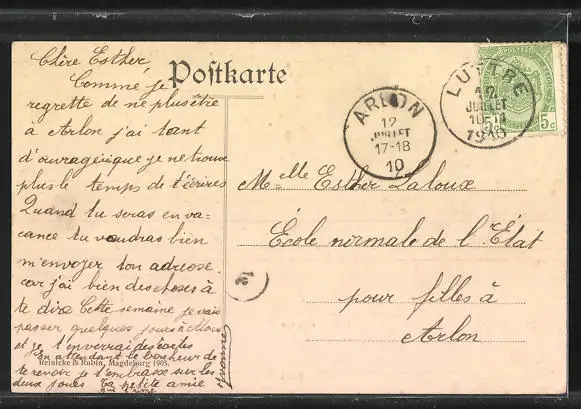 Chère Esther,
Comme je
regrette de ne plus être
à Arlon j'ai tant
d'ouvrage que je ne trouve
plus le temps de t'écrire
Quand tu seras en va-
cance tu voudras bien
m'envoyer ton adresse.
car j'ai bien des choses à
te dire Cette semaine je vais
passer quelques jours à Mons
et je t'enverrai des cartes
En attendant le bonheur de
te revoir je t'embrasse sur les
deux joues Ta petite amie
qui t'aime
Reinicke & Rubin, Magdeburg 1905.
Postkarte
ARLON
12
JUILLET
17-18
10
LUTTRE
12
JUILLET
1910
5c
Melle Esther Laloux
École normale de l'État
pour filles à
Arlon